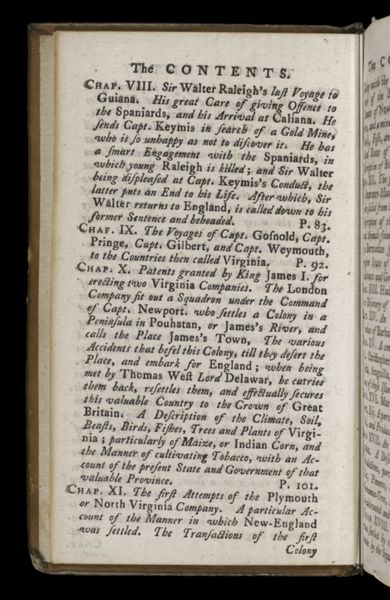 The CONTENTS.
CHAP. VIII. Sir Walter Raleigh's laſt Voyage to
Guiana. His great Care of giving Offence to
the Spaniards, and his Arrival at Caliana. He
ſends Capt. Keymis in ſearch of a Gold Mine,
who is ſo unhappy as not to diſcover it. He has
a ſmart Engagement with the Spaniards, in
which young Raleigh is killed; and Sir Walter
being diſpleaſed at Capt. Keymis's Conduct, the
latter puts an End to his Life. After which, Sir
Walter returns to England, is called down to his
former Sentence and beheaded. P. 83.
CHAP. IX. The Voyages of Capt. Goſnold, Capt.
Pringe, Capt. Gilbert, and Capt. Weymouth,
to the Countries then called Virginia. P. 92.
CHAP. X. Patents granted by King James I. for
erecting two Virginia Companies. The London
Company fit out a Squadron under the Command
of Capt. Newport. who ſettles a Colony in a
Peninſula in Pouhatan, or James's River, and
calls the Place James's Town, The various
Accidents that befel this Colony, till they deſert the
Place, and embark for England; when being
met by Thomas Weſt Lord Delawar, he carries
them back, reſettles them, and effectually ſecures
this valuable Country to the Crown of Great
Britain. A Deſcription of the Climate, Soil,
Beaſts, Birds, Fiſhes, Trees and Plants of Virgi-
nia; particularly of Maize, or Indian Corn, and
the Manner of cultivating Tobacco, with an Ac-
count of the preſent State and Government of that
valuable Province. P. 101.
CHAP. XI. The firſt Attempts of the Plymouth
or North Virginia Company. A particular Ac-
count of the Manner in which New-England
was ſettled. The Tranſactions of the firſt
Colony